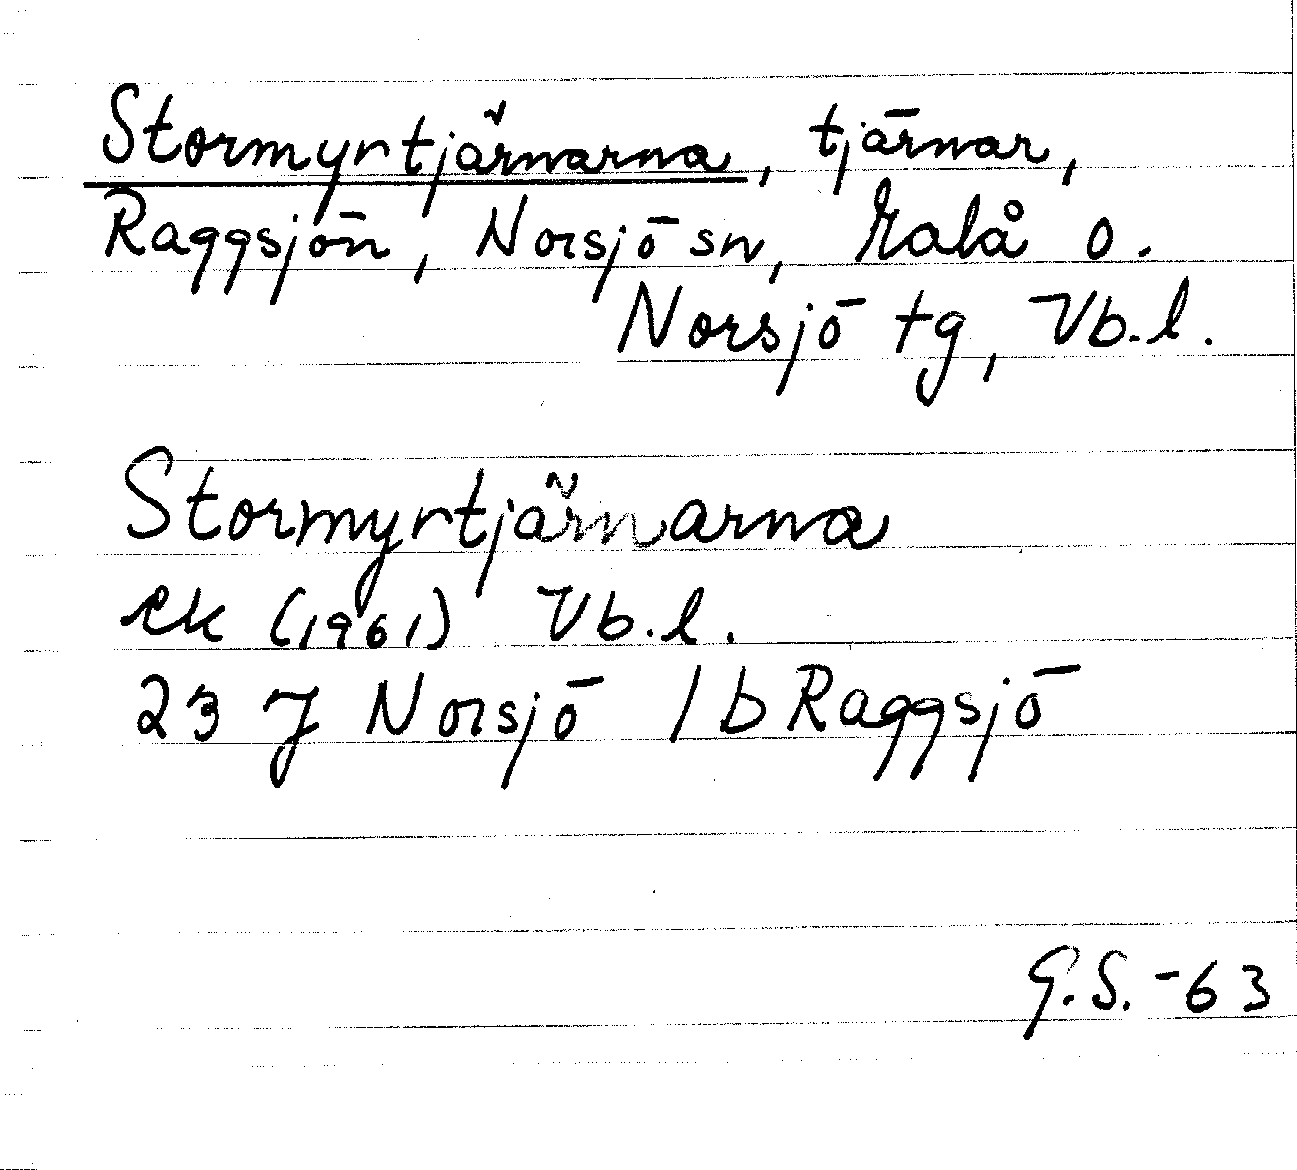 Stormyrtjärnarna, tjärnar,
Raggsjön, Norsjö sn, Malå o.
Norsjö tg, Vb.l.
Stormyrtjärnarna
ek (1961) Vb.l.
23 J Norsjö 1 b Raggsjö
G.S. -63